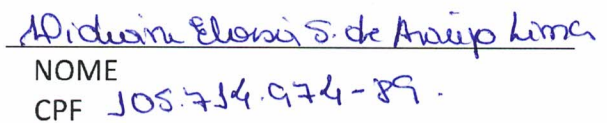 Eloisa S. de Araújo Lima
NOME
CPF 105.714.974-89.